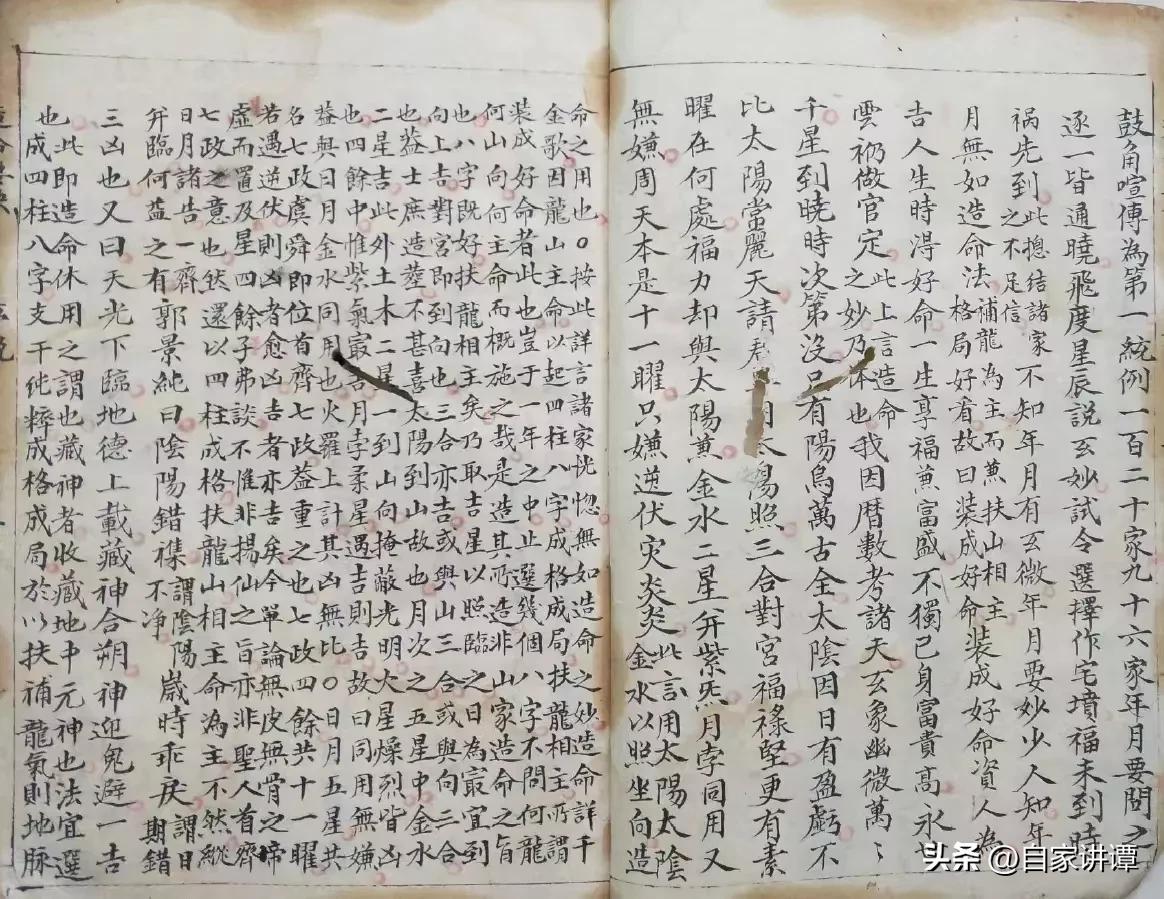 鼓角喧傳為第一統例一百二十家九十六家年月要問
逐一皆通曉飛度星辰說玄妙試令選擇作宅墳福未到時
禍先到此摠结諸家之不足信不知年月有玄微年月要妙少人知年
月無如造命法補龍為主而蕉扶山相主格局好看故曰装成好命装成好命資人為
吉人生時淂好命一生享福蕉富盛不獨已身富貴高永
雲礽做官定此上言造命之妙乃体也我因曆數考諸天玄象幽微萬〻
千星到曉時次第沒只有陽烏萬古全太陰因日有盈虧不
比太陽當麗天請君太陽照三合對宮福祿堅更有素
曜在何處福力却與太陽蕉金水二星并紫炁月孛同用又
無嫌周天本是十一曜只嫌逆伏灾炎炎此言用太陽太陰金水以照坐向造
命之用也○按此詳言諸家恍惚無如造命之妙造命詳千
金歌因龍山主命以起四柱八字成格成局扶龍相主所謂
装成好命者此也豈于一年之中止選幾個八字不問何龍
何山何向何主命而概施之哉是造其所造非山家造命之旨
也八字既好扶龍相主矣乃取吉星以照臨之日為最宜到
向上吉對宮即到向也三合亦吉或與山三合或與向三合
也益士庶造塟不甚喜太陽到山故也月次之五星中金水
二星吉此外土木二星一到山向掩蔽光明火星燥烈皆凶
也四餘中惟紫氣最吉月孛柔星遇吉則吉故曰同用無嫌
益與日月金水同用也火羅上計其凶無比○日月五星共
名七政虞舜即位首齊七政益重之也七政四餘共十一曜
若遇逆伏則凶者愈凶吉者亦吉矣今單論無皮無骨之啼
虛而置及星四餘子弗談不惟非揚仙之旨亦非聖人首齊
七政之意也然還以四柱成格扶龍山相主命為主不然縱
日月諸吉一齊并臨何益之有郭景純曰陰陽錯襍謂陰陽不净歲時乖戾謂日期錯
三凶也又曰天光下臨地德上載藏神合朔神迎鬼避一吉
也此即造命休用之謂也藏神者收藏地中元神也法宜選
也成四柱八字支干純粹成格成局於以扶補龍氣則地脉
头条 @自家讲谭